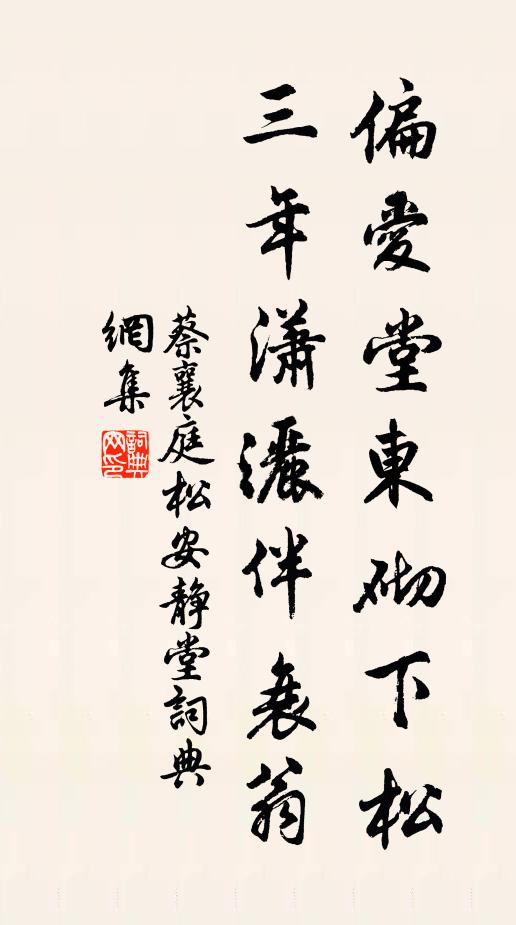 偏愛堂東砌下松
三年瀟灑伴衰翁
蔡襄庭松安靜堂詞典
網集
詞典網印